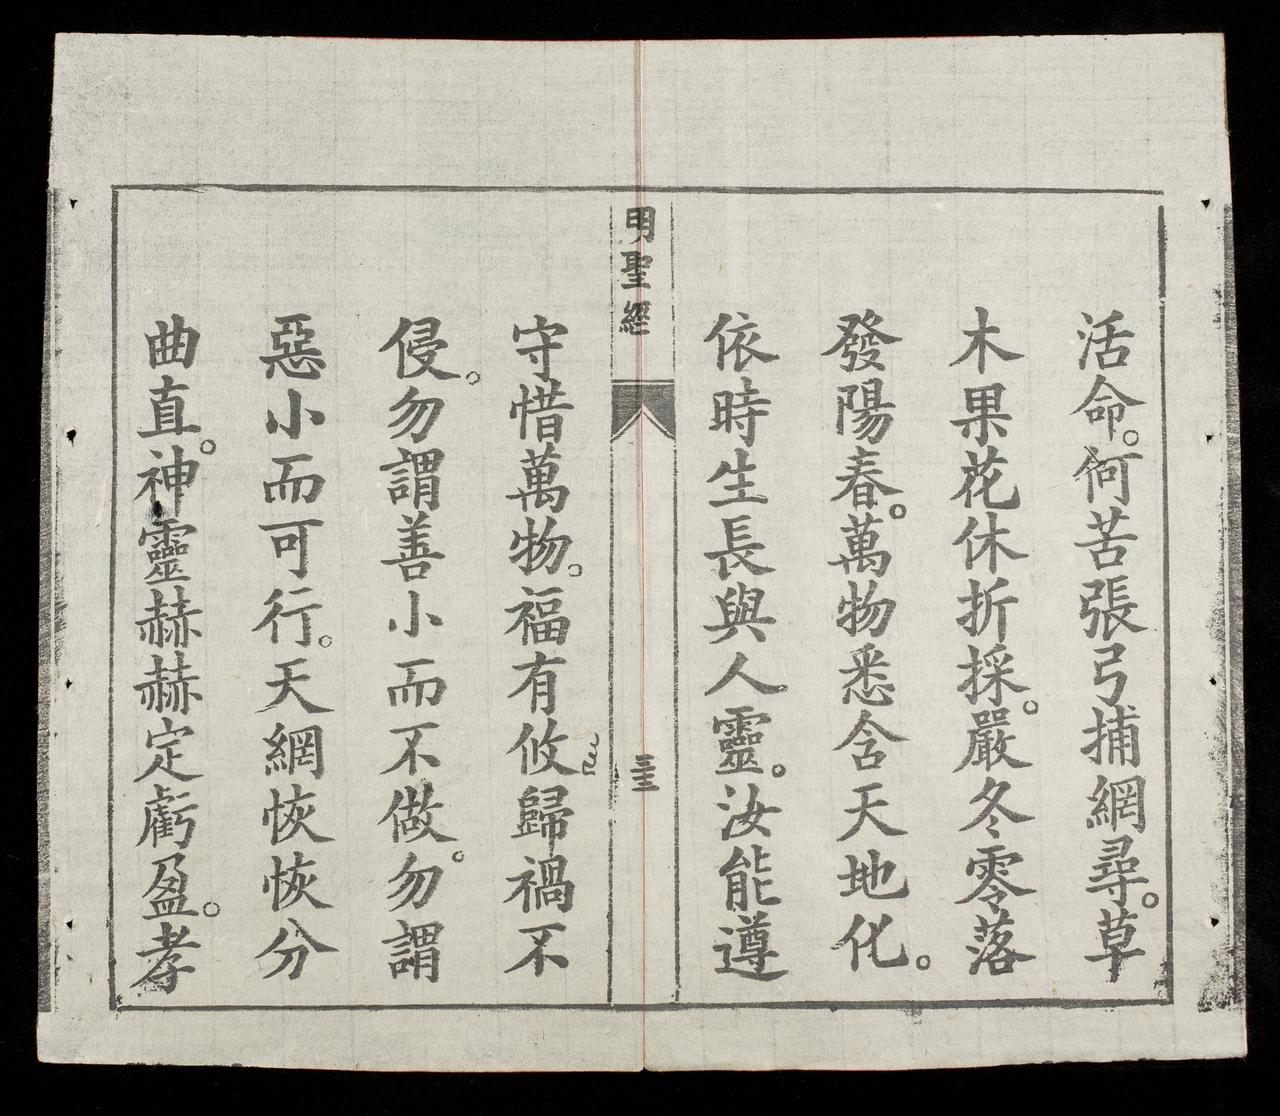 活命。何苦張弓捕網尋。草
木果花休折採。嚴冬零落
發陽春。萬物悉含天地化。
依時生長與人靈。汝能遵
明聖經
三十三
守惜萬物。福有攸歸禍不
侵。勿謂善小而不做。勿謂
惡小而可行。天網恢恢分
曲直。神靈赫赫定虧盈。孝